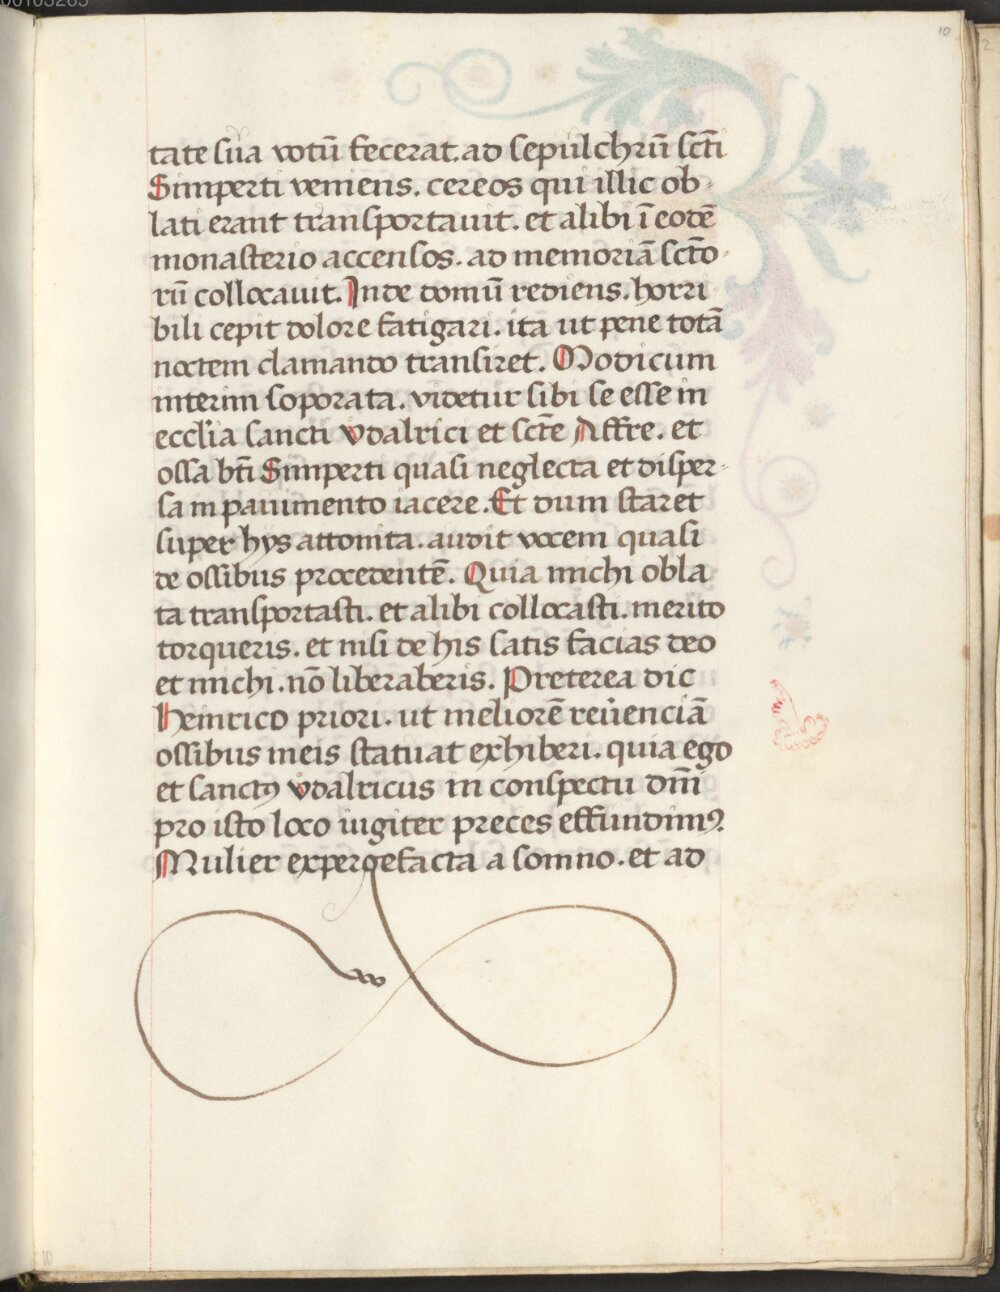 00103265
10
tate sua votū fecerat. ad sepulchrū sc̄ti
Simperti veniens. cereos qui illic ob-
lati erant transportauit. et alibi ī eodē
monasterio accensos. ad memoriā sc̄to-
rū collocauit. Inde domū rediens. horri
bili cepit dolore fatigari. ita ut pene totā
noctem clamando transiret. Modicum
interim soporata. videtur sibi se esse in
eccl̄ia sancti Vͦdalrici et sc̄te Affre. et
ossa bt̄i Simperti quasi neglecta et disper-
sa in pauimento iacere. Et dum staret
super hys attonita. audit vocem quasi
de ossibus procedentē. Quia michi obla
ta transportasti. et alibi collocasti. merito
torqueris. et nisi de his satis facias deo
et michi. nō liberaberis. Preterea dic
Heinrico priori. ut meliorē reūenciā
ossibus meis statuat exhiberi. quia ego
et sanctꝰ vͦdalricus in conspectu dn̄i
pro isto loco iugiter preces effundimꝰ.
Mulier expergefacta a somno. et ad
10